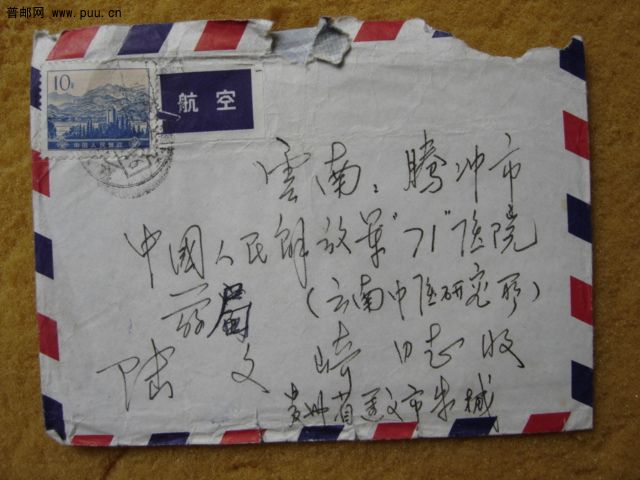 普邮网 www.puu.cn
10分
中国人民邮政
航空
雲南:腾冲市
中國人民解放军"71"医院
药局(云南中医研究所)
陆文崎同志收
贵州省遵义市朱